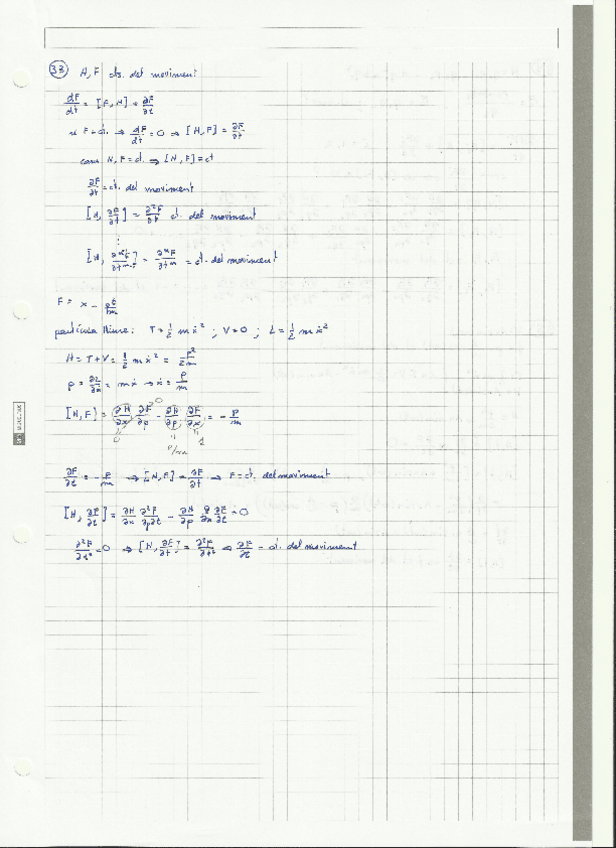 33 H, F cts. del moviment
dF/dt = [F, H] + ∂F/∂t
si F = ct. ⇒ dF/dt = 0 ⇒ [H, F] = ∂F/∂t
com H, F = ct. ⇒ [H, F] = ct
∂F/∂t = ct. del moviment
[H, ∂F/∂t] = ∂²F/∂t² ct. del moviment
⋮
= ct. del moviment
F = x - pt/m
partícula lliure: T = 1/2 m ẋ² ; V = 0 ; L = 1/2 m ẋ²
H = T + V = 1/2 m ẋ² = p²/2m
p = ∂L/∂ẋ = mẋ → ẋ = p/m
[H, F] = ∂H/∂x ∂F/∂p - ∂H/∂p ∂F/∂x = - p/m
0
0 p/m 1
∂F/∂t = - p/m → [H, F] = ∂F/∂t → F = ct. del moviment
[H, ∂F/∂t] = ∂H/∂x ∂²F/∂p∂t - ∂H/∂p ∂/∂x ∂F/∂t = 0
∂²F/∂t² = 0 → [H, ∂F/∂t] = ∂²F/∂t² ⇒ ∂F/∂t - ct. del moviment